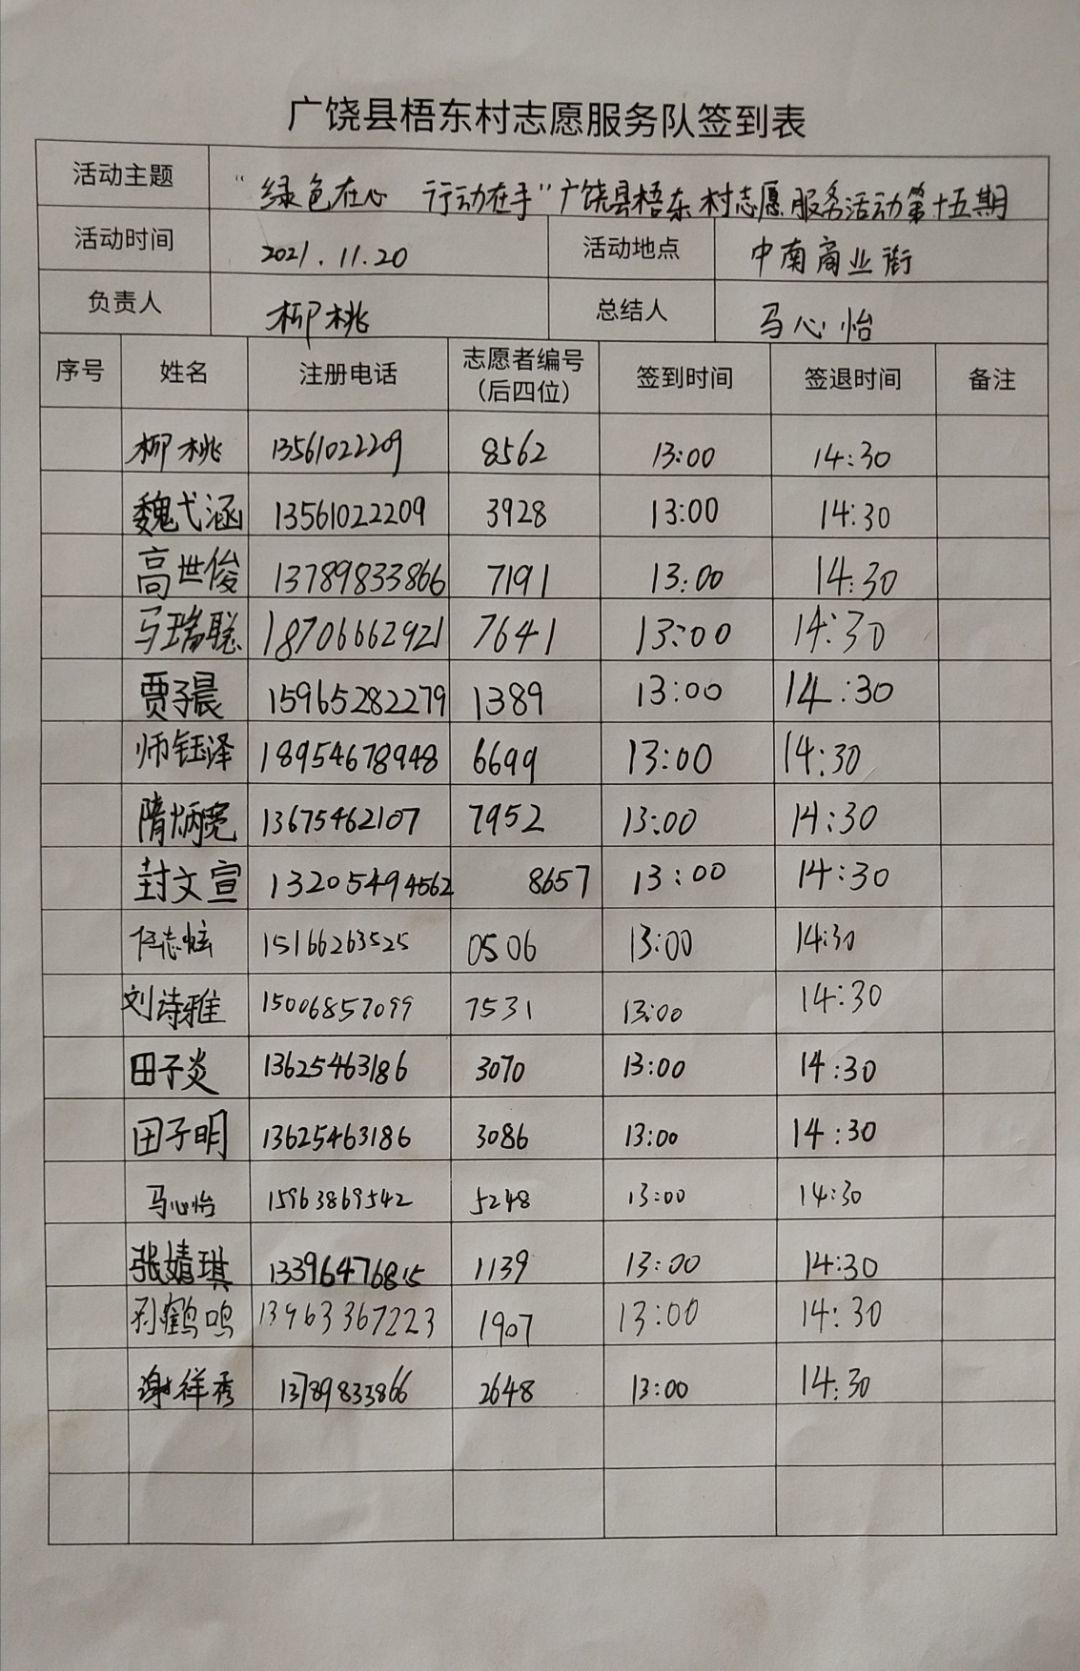 广饶县梧东村志愿服务队签到表
活动主题 “绿色在心 行动在手”广饶县梧东村志愿服务活动第十五期
活动时间 2021.11.20 活动地点 中南商业街
负责人 柳桃 总结人 马心怡
序号 姓名 注册电话 志愿者编号（后四位） 签到时间 签退时间 备注
柳桃 13561022209 8562 13:00 14:30
魏弋涵 13561022209 3928 13:00 14:30
高世俊 13789833866 7191 13:00 14:30
马瑞聪 18706662921 7641 13:00 14:30
贾子晨 15965282279 1389 13:00 14:30
师钰泽 18954678948 6699 13:00 14:30
隋炳宽 13675462107 7952 13:00 14:30
封文宣 13205494562 8657 13:00 14:30
任志炫 15166263525 0506 13:00 14:30
刘诗雅 15006857099 7531 13:00 14:30
田子炎 13625463186 3070 13:00 14:30
田子明 13625463186 3086 13:00 14:30
马心怡 15963869542 5248 13:00 14:30
张婧琪 13396476815 1139 13:00 14:30
孙鹤鸣 13963367223 1907 13:00 14:30
谢祥秀 13789833866 2648 13:00 14:30